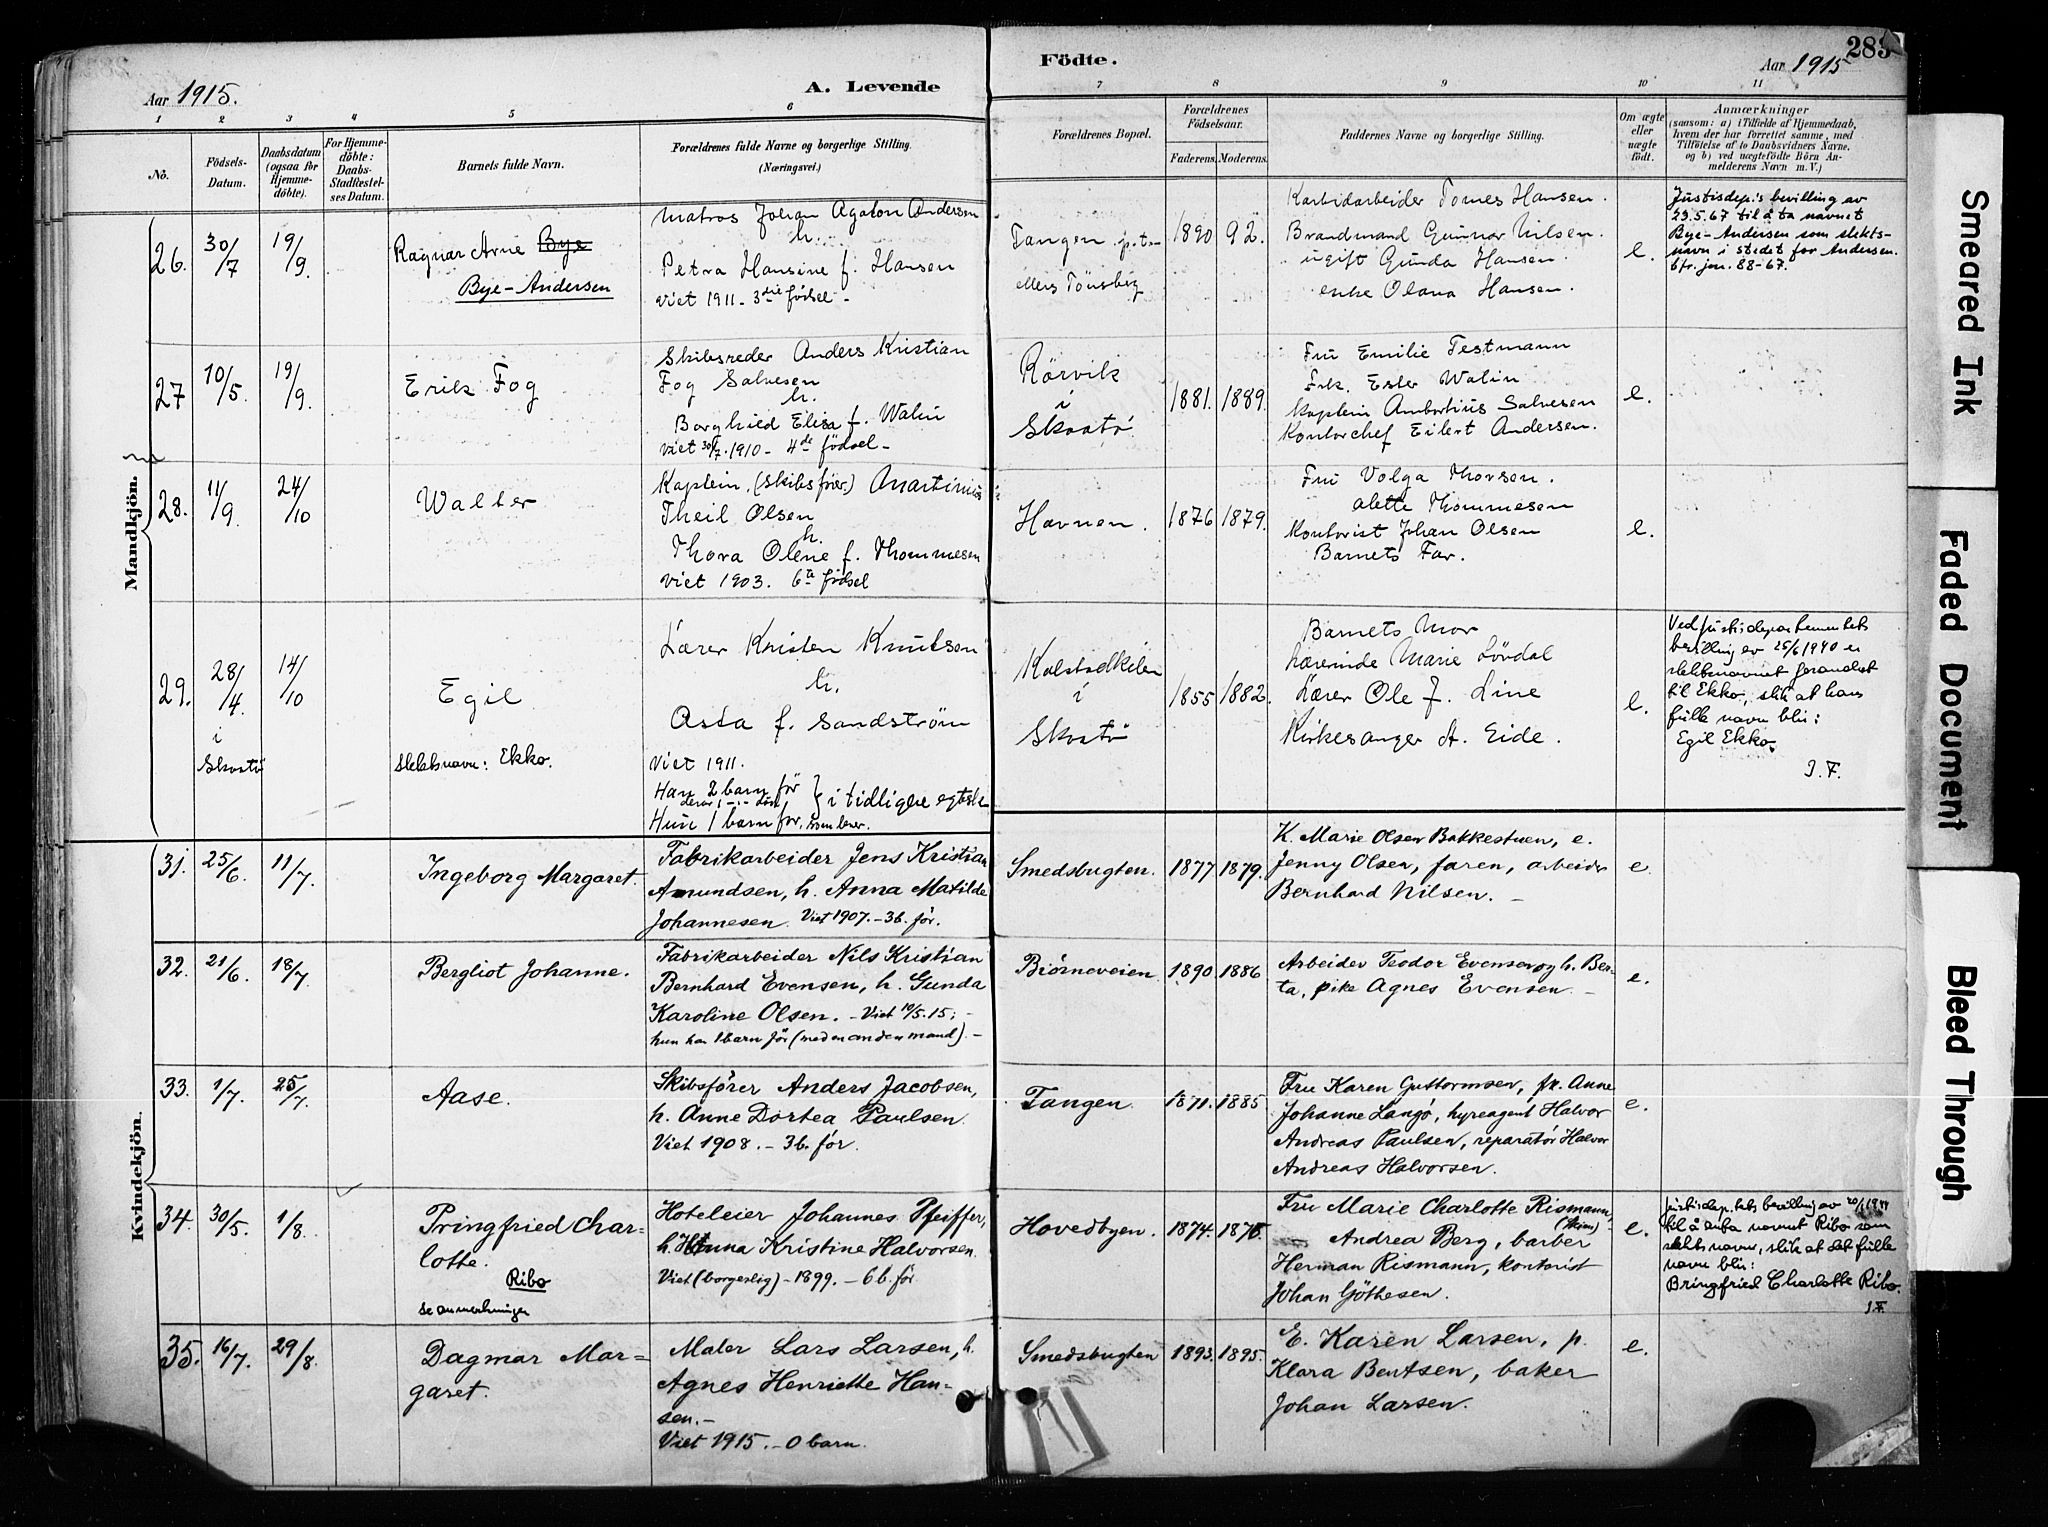 283
Aar 1915.
A. Levende
Födte.
Aar 1915
1 2 3 4 5 6 7 8 9 10 11
No.
Födsels-
Datum.
Daabsdatum
(ogsaa for
Hjemme-
döbte).
For Hjemme-
döbte:
Daabs-
Stadfæstel-
ses Datum.
Barnets fulde Navn.
Forældrenes fulde Navne og borgerlige Stilling.
(Næringsvei.)
Forældrenes Bopæl.
Forældrenes
Födselsaar.
Faderens. Moderens.
Faddernes Navne og borgerlige Stilling.
Om ægte
eller
uægte
födt.
Anmærkninger
(saasom: a) i Tilfælde af Hjemmedaab,
hvem der har forrettet samme, med
Tilföielse af to Daabsvidners Navne,
og b) ved uægtefödte Börn An-
melderens Navn m. V.)
Mandkjön.
26. 30/7 19/9.
Ragnar Arne Bye
Bye-Andersen
Matros Johan Agaton Andersen
h.
Petra Hansine f. Hansen
viet 1911 - 3die fødsel -
Tangen p.t.
ellers Tönsberg
1890 92.
Karbidarbeider Tomes Hansen.
Brandmand Gunnar Nilsen.
ugift Gunda Hansen.
enke Olava Hansen.
e.
Justisdep.'s bevilling av
23.5.67 til å ta navnet
Bye-Andersen som slekts-
navn i stedet for Andersen.
bfr. jnr. 88-67.
27 10/5. 19/9.
Erik Fog
Skibsreder Anders Kristian
Fog Salvesen
h.
Borghild Elisa f. Walin
viet 30/7.1910 - 4de fødsel -
Rörvik
i
Skaatö
1881. 1889.
Fru Emilie Testmann
Frk. Ester Walin
Kaptein Ambortius Salvesen
Kontorchef Eilert Andersen.
e.
28. 11/9. 24/10
Walter
Kaptein, (Skibsfører) Martinius
Theil Olsen
h.
Thora Olene f. Thommesen
viet 1903. 6te fødsel
Havnen.
1876 1879.
Fru Volga Thorsen.
Alette Thommesen
Kontorist Johan Olsen
Barnets Far.
e.
29. 28/4. 14/10
i
Skaatö
Egil
Slektsnavn: Ekko.
Lærer Kristen Knutsen
h.
Asta f. Sandström
Viet 1911.
Han 2 barn før } i tidligere egtesk.
Hun 1 barn før, som lever.
Kalstadkilen
i
Skaatö
1855 1882.
Barnets Mor
Lærerinde Marie Lövdal
Lærer Ole J. Line
Kirkesanger A. Eide.
e.
Ved justisdepartementets
bevilling av 25/6 1940 er
slektsnavnet forandret
til Ekko, slik at hans
fulle navn blir:
Egil Ekko.
J.F.
Kvindekjön.
31. 25/6. 11/7.
Ingeborg Margaret.
Fabrikarbeider Jens Kristian
Amundsen, h. Anna Matilde
Johannesen. Viet 1907. - 3b. før.
Smedsbugten.
1877 1879.
K. Marie Olsen Bakkestuen, e.
Jenny Olsen, faren, arbeider
Bernhard Nilsen. -
e.
32. 21/6. 18/7.
Bergliot Johanne.
Fabrikarbeider Nils Kristian
Bernhard Evensen, h. Gunda
Karoline Olsen. - Viet 10/5.15; -
hun har 1 barn før (med en anden mand). -
Björneveien
1890. 1886
Arbeider Teodor Evensen og h. Ber-
ta, pike Agnes Evensen. -
e.
33. 1/7. 25/7.
Aase.
Skibsfører Anders Jacobsen,
h. Anne Dortea Paulsen.
Viet 1908. - 3b. før.
Tangen.
1871. 1885
Fru Karen Guttormsen, fr. Anne
Johanne Langö, hyreagent Halvor
Andreas Paulsen, reparatör Halvor
Andreas Halvorsen.
e.
34. 30/5. 1/8.
Pringfried Char-
lotte.
Ribo
se anmerkninger
Hoteleier Johannes Pfeiffer,
h. Anna Kristine Halvorsen.
Viet (borgerlig) - 1899. - 6 b. før
Hovedbyen.
1874. 1876.
Fru Marie Charlotte Rismann,
Andrea Berg, barber
Herman Rismann, kontorist
Johan Göthesen.
e.
justisdep.tets bevilling av 20/1 1944
til å anta navnet Ribo som
slektsnavn, slik at det fulle
navn blir:
Bringfried Charlotte Ribo.
J.F.
35. 16/7. 29/8.
Dagmar Mar-
garet.
Maler Lars Larsen, h.
Agnes Henriette Han-
sen. -
Viet 1915. - 0 barn.
Smedsbugten
1893. 1895.
E. Karen Larsen, p.
Klara Bentsen, baker
Johan Larsen.
e.
Smeared Ink
Faded Document
Bleed Through